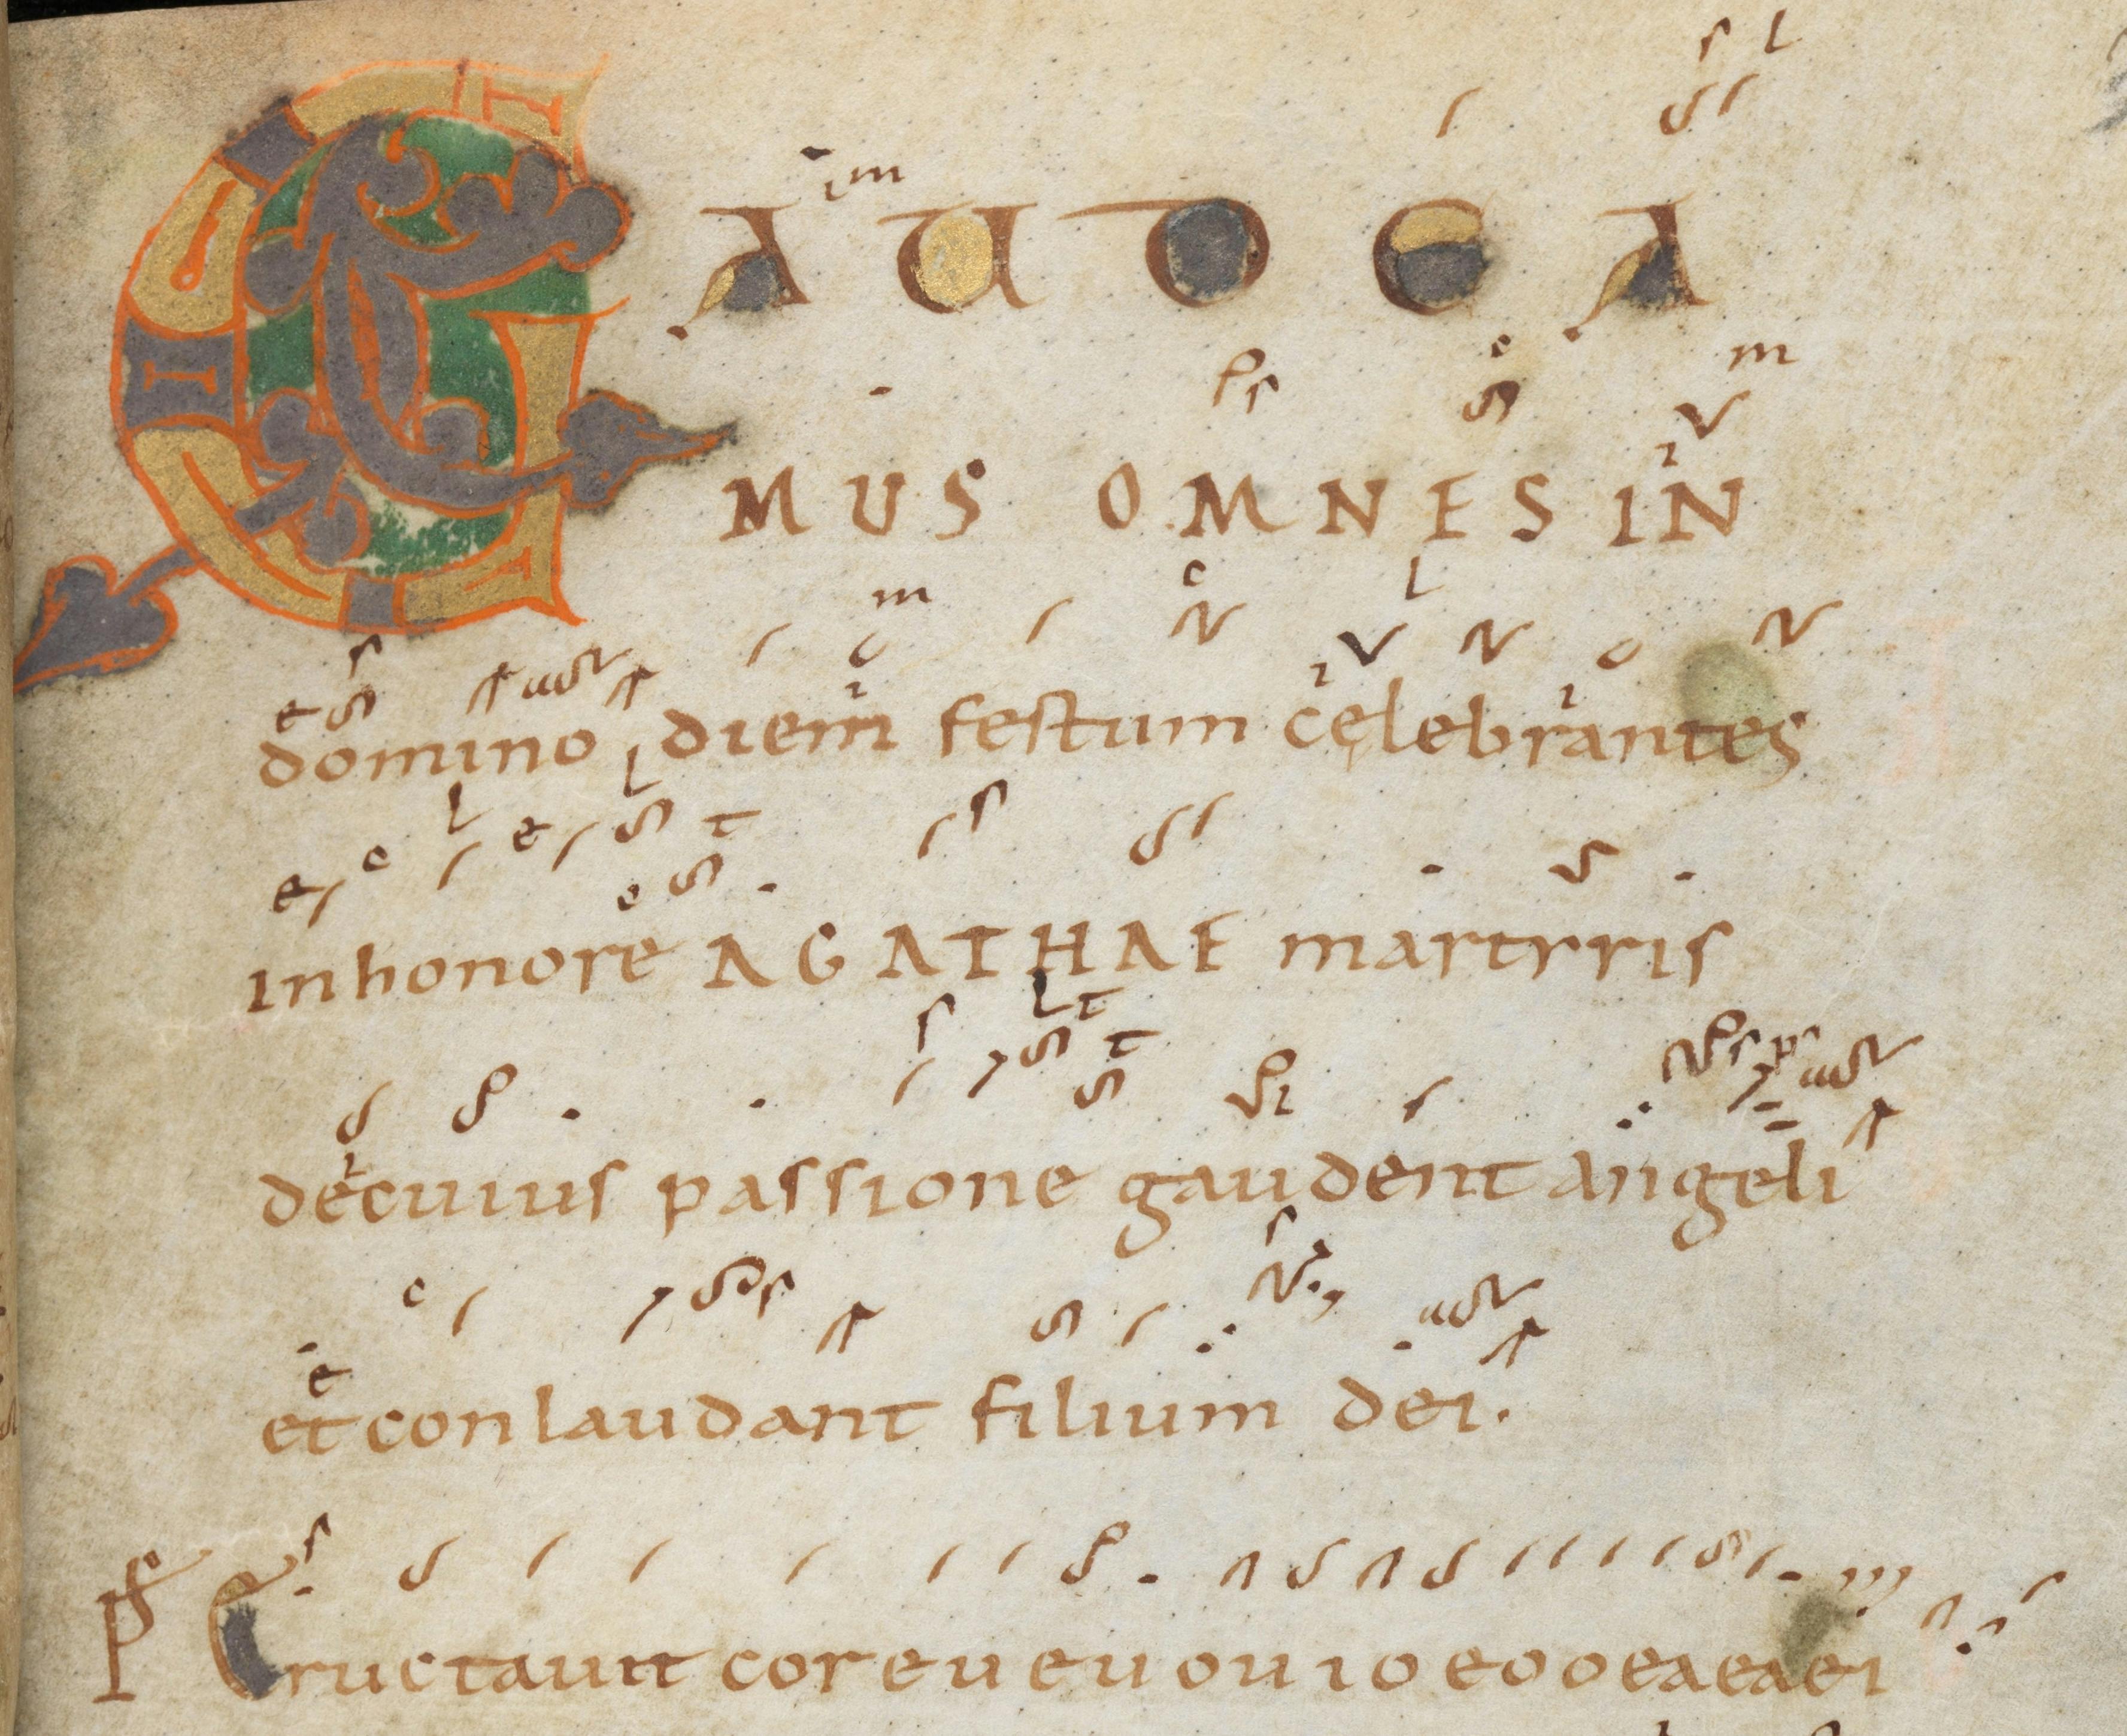 GAUDEA
MUS OMNES IN
domino diem festum celebrantes
inhonore AGATHAE martyris
decuius passione gaudent angeli
et conlaudant filium dei.
Ps Eructauit cor eueuouioeooeaeaei